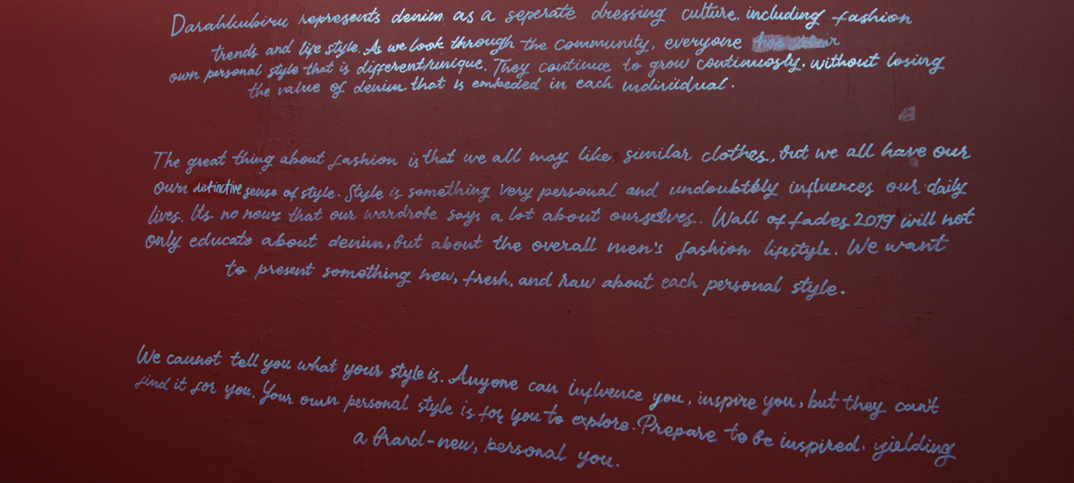 Darahkubiru represents denim as a seperate dressing culture, including fashion
trends and life style. As we look through the community, everyone
own personal style that is different/unique. They continue to grow continuosly, without losing
the value of denim that is embeded in each individual.
The great thing about fashion is that we all may like similar clothes, but we all have our
own distinctive sense of style. Style is something very personal and undoubtbly influences our daily
lives. It's no news that our wardrobe says a lot about ourselves. Wall of fades 2019 will not
only educate about denim, but about the overall men's fashion lifestyle. We want
to present something new, fresh, and raw about each personal style.
We cannot tell you what your style is. Anyone can influence you, inspire you, but they can't
find it for you. Your own personal style is for you to explore. Prepare to be inspired, yielding
a brand-new, personal you.